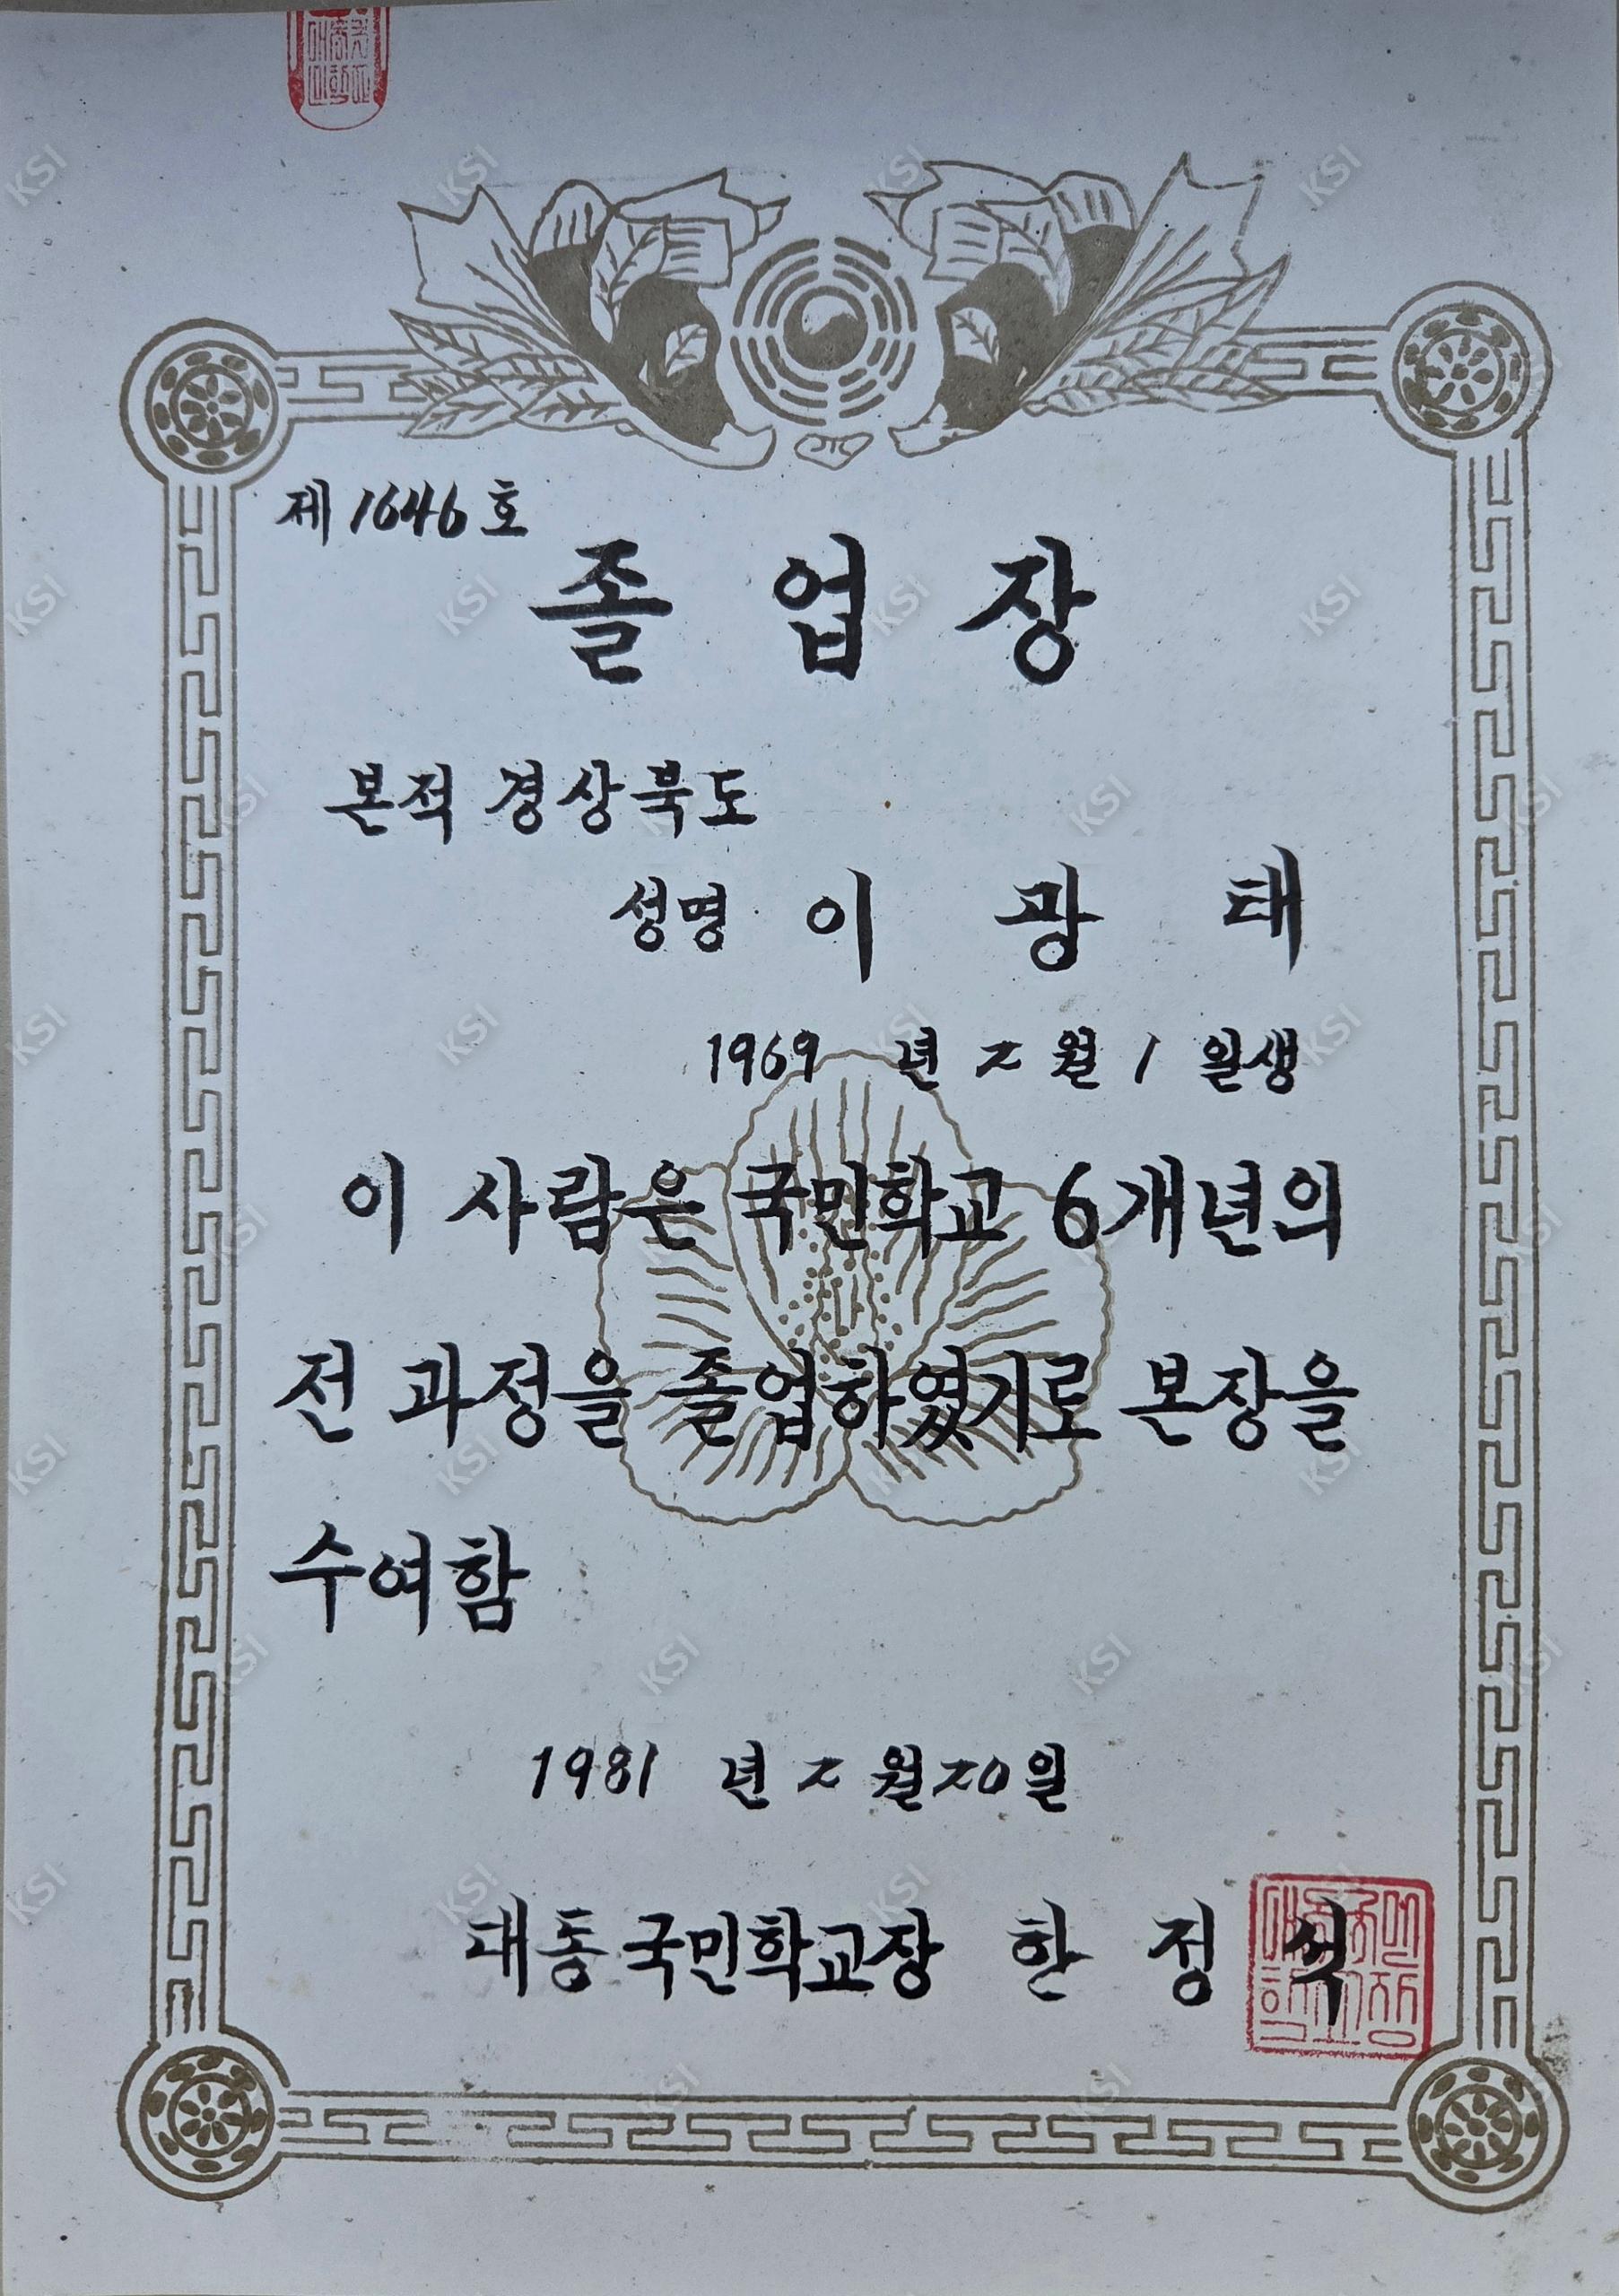 제 1646 호
졸 업 장
본적 경상북도
성명 이 광 태
1969 년 2 월 1 일생
이 사람은 국민학교 6개년의
전 과정을 졸업하였기로 본장을
수여함
1981 년 2 월 20 일
대동국민학교장 한 정 석